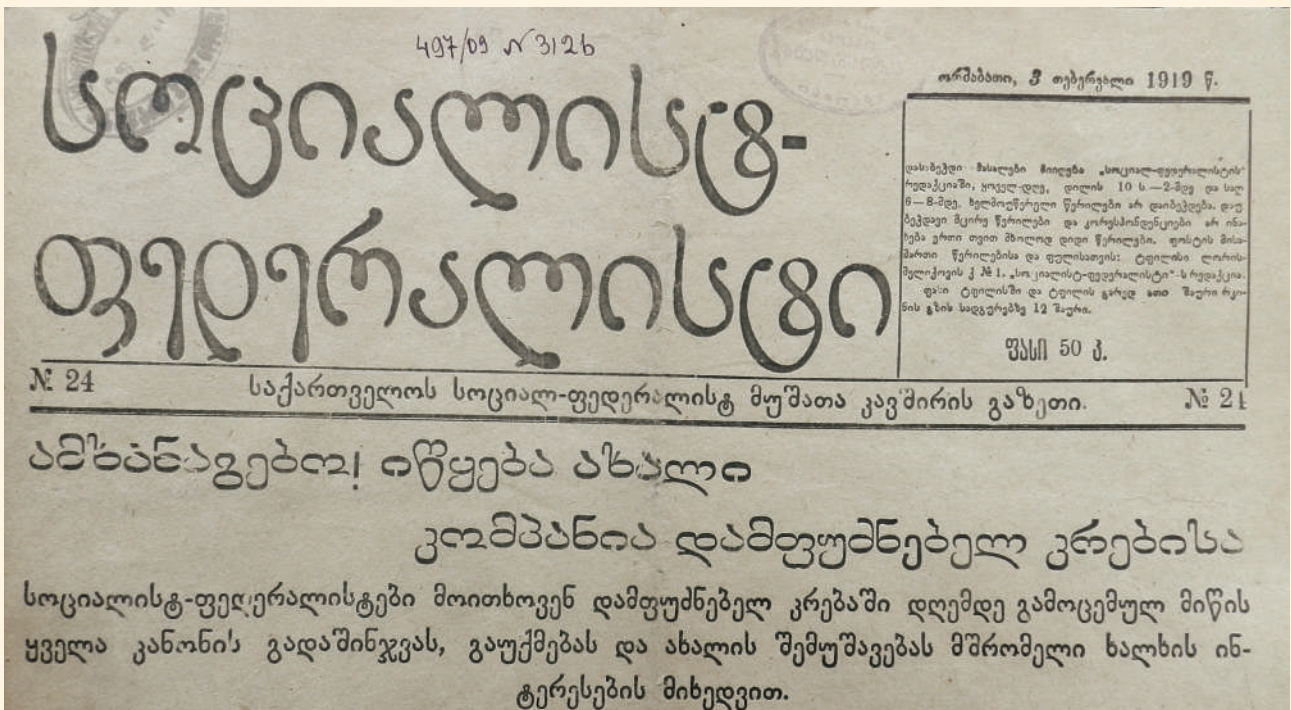 497/09 N 312б
სოციალისტ-
ფედერალისტი
ორშაბათი, 3 თებერვალი 1919 წ.
დასაბეჭდი მასალები მიიღება „სოციალ-ფედერალისტის“
რედაქციაში, ყოველ-დღე, დილის 10 ს.—2-მდე და საღ
6—8-მდე. ხელმოუწერელი წერილები არ დაიბეჭდება. დაუ
ბეჭდავი მცირე წერილები და კორესპონდენციები არ ინა-
ხება ერთი თვით მხოლოდ დიდი წერილები. ფოსტის მისა-
მართი წერილებისა და ფულისათვის: ტფილისი ლორის-
მელიქოვის ქ № 1. „სოციალისტ-ფედერალისტი“-ს რედაქცია.
ფასი ტფილისში და ტფილის გარედ ათი შაური რკი-
ნის გზის სადგურებზე 12 შაური.
ფასი 50 კ.
№ 24
საქართველოს სოციალ-ფედერალისტ მუშათა კავშირის გაზეთი.
№ 24
ამხანაგებო! იწყება ახალი
კომპანია დამფუძნებელ კრებისა
სოციალისტ-ფედერალისტები მოითხოვენ დამფუძნებელ კრებაში დღემდე გამოცემულ მიწის
ყველა კანონის გადაშინჯვას, გაუქმებას და ახალის შემუშავებას მშრომელი ხალხის ინ-
ტერესების მიხედვით.